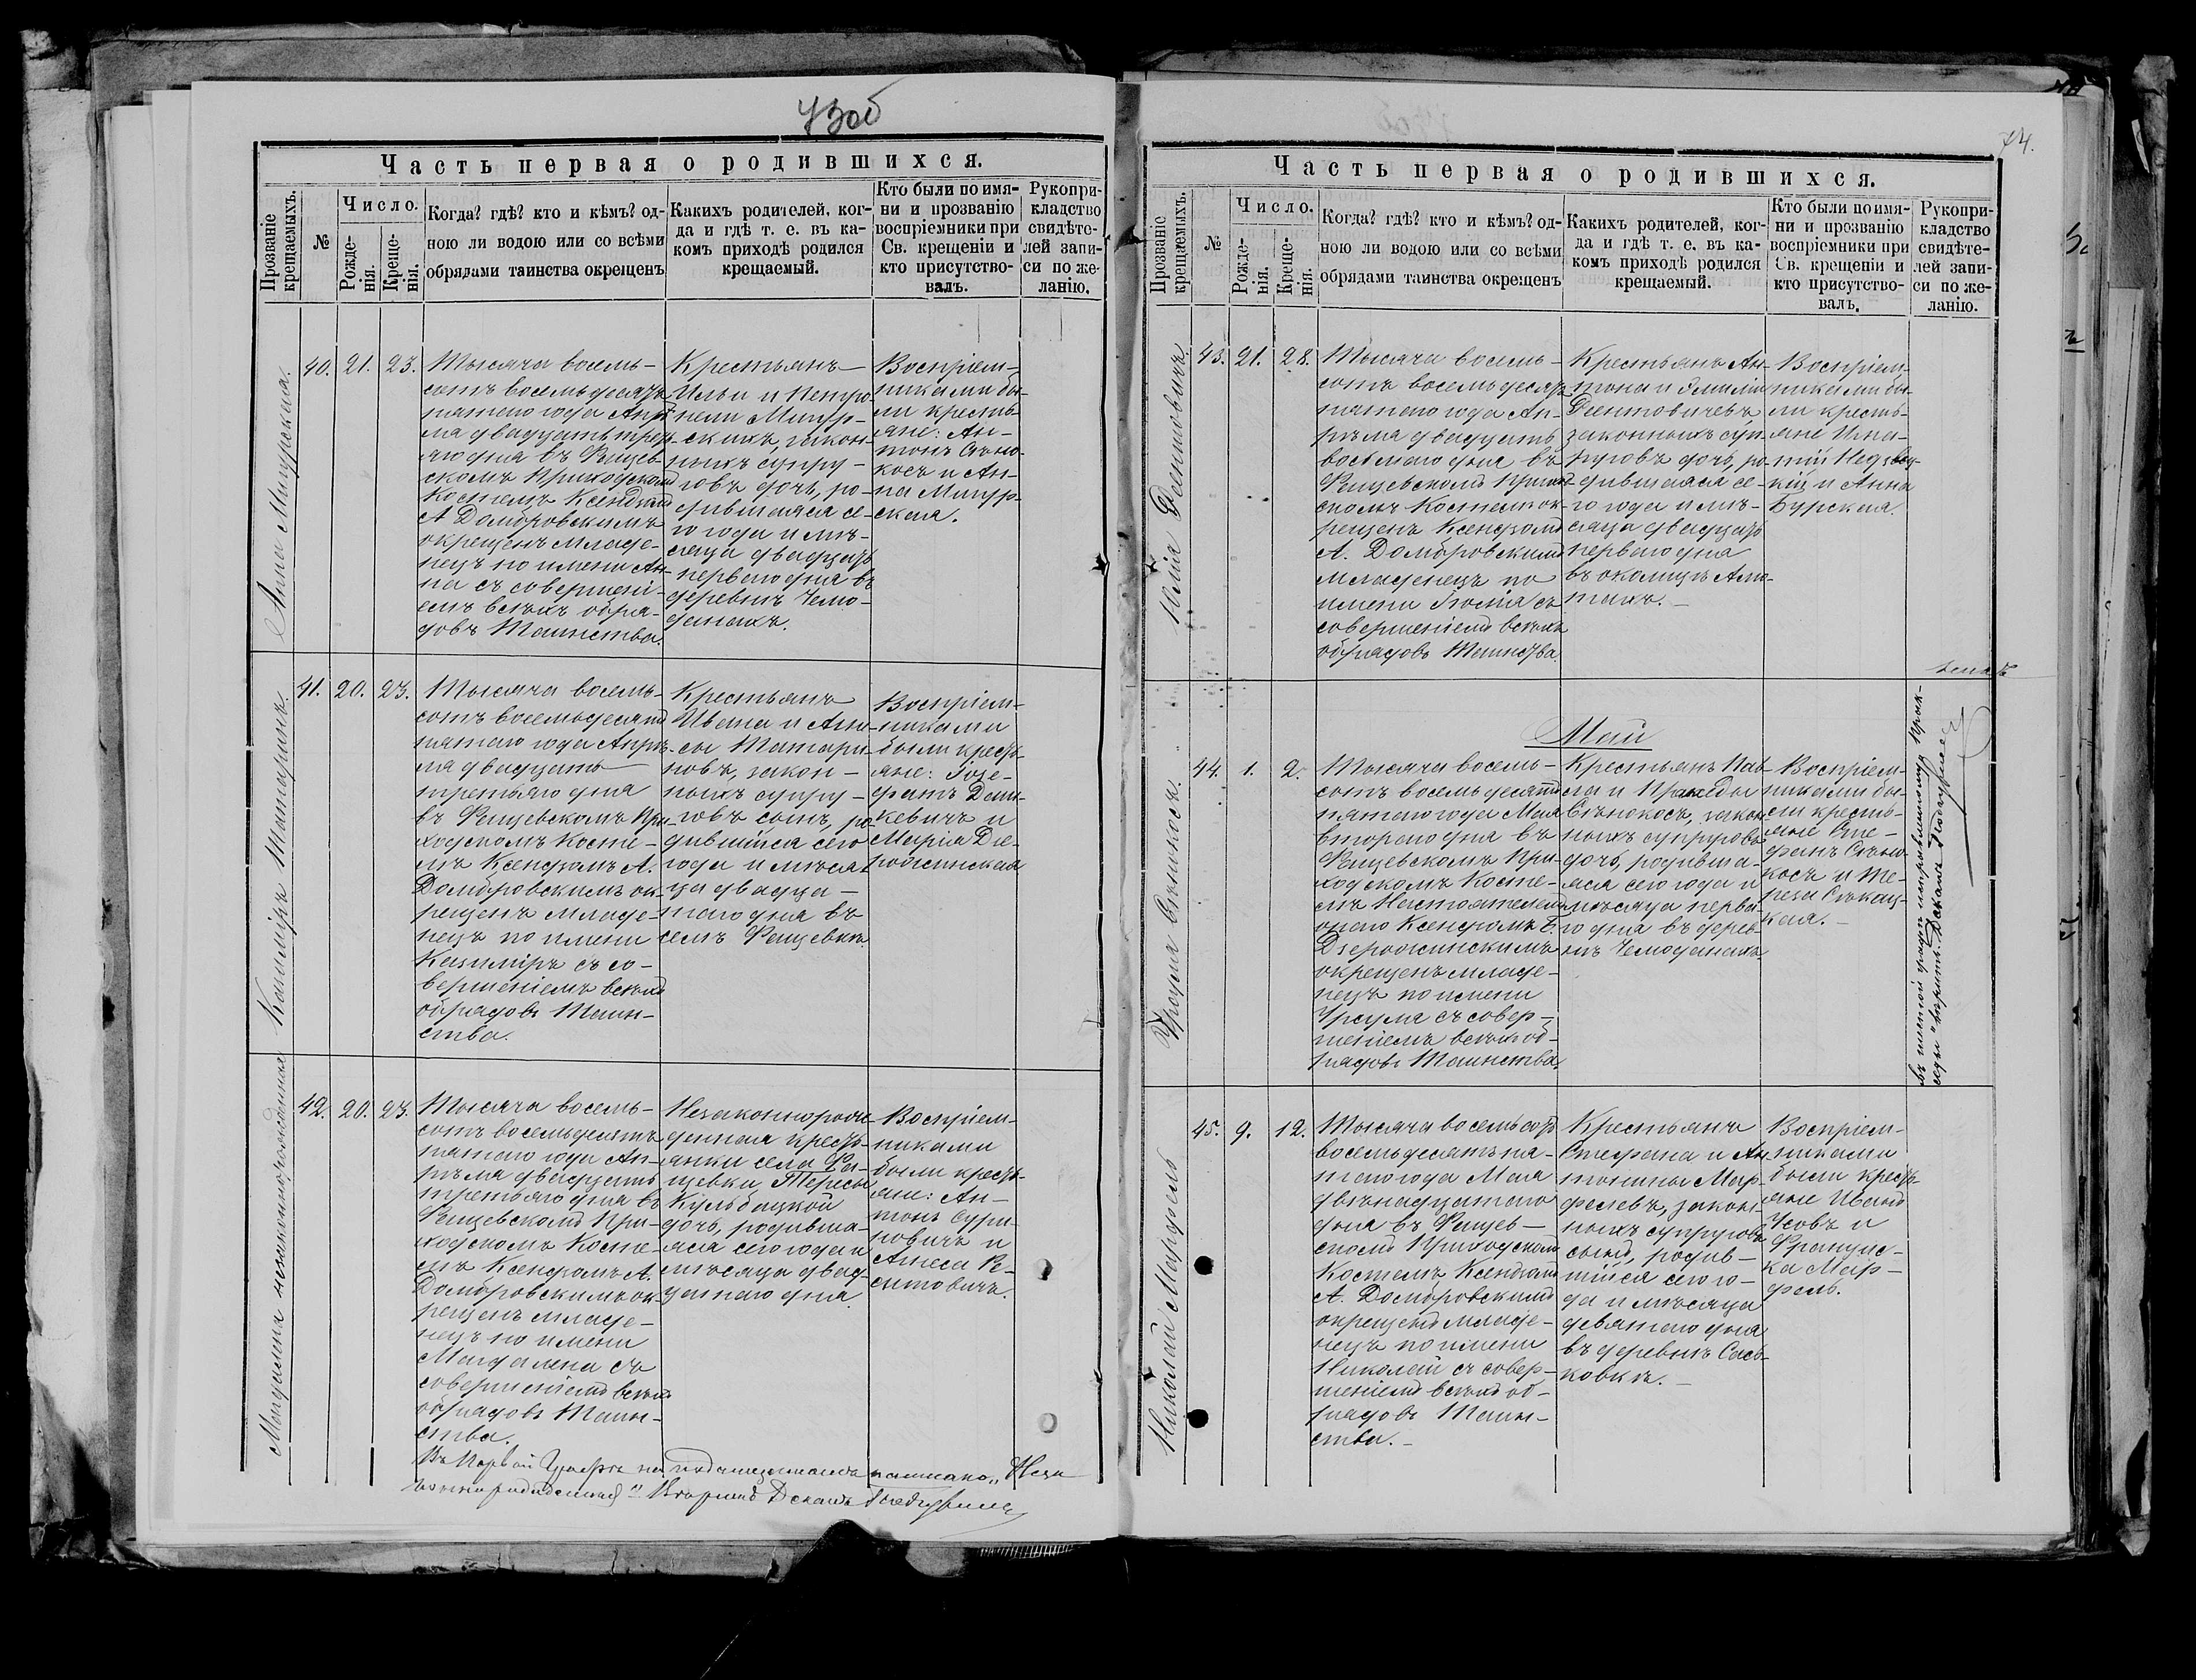 73об
Часть первая о родившихся.
Прозваніе крещаемыхъ.
№
Число.
Рожде-
нія.
Креще-
нія.
Когда? гдѣ? кто и кѣмъ? од-
ною ли водою или со всѣми
обрядами таинства окрещенъ
Какихъ родителей, ког-
да и гдѣ т. е. въ ка-
комъ приходѣ родился
крещаемый.
Кто были по имя-
ни и прозванію
воспріемники при
Св. крещеніи и
кто присутство-
валъ.
Рукопри-
кладство
свидѣте-
лей запи-
си по же-
ланію.
Анна Мигурская.
40. 21. 23.
Тысяча восемь-
сотъ восемьдесятъ
пятаго года Апрѣ
ля двадцать треть-
яго дня въ Фащев-
скомъ Приходскомъ
Костелѣ Ксендзомъ
А Домбровскимъ
окрещенъ младе-
нецъ по имени Ан-
на съ совершені-
емъ всѣхъ обря-
довъ Таинства.
Крестьянъ
Ильи и Петро
нели Мигур-
скихъ, закон-
ныхъ супру-
говъ дочь, ро-
дившаяся се-
го года и мѣ-
сяца двадцать
перваго дня въ
деревнѣ Чемо-
данахъ.
Воспріем-
никами бы-
ли крестья-
яне: Ан-
тонъ Сѣно-
косъ и Ан-
на Мигур-
ская.
Казиміръ Татариновъ.
41. 20. 23.
Тысяча восемь-
сотъ восемьдесятъ
пятаго года Апрѣ-
ля двадцать
третьяго дня
въ Фащевскомъ При-
ходскомъ Косте-
лѣ Ксендзомъ А.
Домбровскимъ ок-
рещенъ младе-
нецъ по имени
Казиміръ съ со-
вершеніемъ всѣхъ
обрядовъ Таин-
ства.
Крестьянъ
Ивана и Агне-
сы Татари-
новъ, закон-
ныхъ супру-
говъ сынъ, ро-
дившійся сего
года и мѣся-
ца двадца-
таго дня въ
селѣ Фащевкѣ.
Воспріем-
никами
были кресть-
яне: Іозе-
фатъ Дани-
кевичъ и
Марія Дзе-
рожинская
Магдалина незаконнорожденная
42. 20. 23.
Тысяча восемь-
сотъ восемьдесятъ
пятаго года Ап-
рѣля двадцать
третьяго дня въ
Фащевскомъ При-
ходскомъ Косте-
лѣ Ксендзомъ А.
Домбровскимъ ок-
рещенъ младе-
нецъ по имени
Магдалена съ
совершеніемъ всѣхъ
обрядовъ Таин-
ства.
Незаконнорож-
денная кресть-
янки села Фа-
щевки Тересы
Кульбацкой
дочь, родивша-
яся сего года и
мѣсяца двад-
цатаго дня.
Воспріем-
никами
были кресть-
яне: Ан-
тонъ Сури-
новичъ и
Агнеса Ре-
ентовичъ.
Въ первой графѣ написано „Неза
коннорожденная" Вѣрно Деканъ
74.
Часть первая о родившихся.
Прозваніе крещаемыхъ.
№
Число.
Рожде-
нія.
Креще-
нія.
Когда? гдѣ? кто и кѣмъ? од-
ною ли водою или со всѣми
обрядами таинства окрещенъ
Какихъ родителей, ког-
да и гдѣ т. е. въ ка-
комъ приходѣ родился
крещаемый.
Кто были по имя-
ни и прозванію
воспріемники при
Св. крещеніи и
кто присутство-
валъ.
Рукопри-
кладство
свидѣте-
лей запи-
си по же-
ланію.
Юлія Реентовичъ.
43. 21. 28.
Тысяча восемь-
сотъ восемьдесятъ
пятаго года Ап-
рѣля двадцать
восьмаго дня въ
Фащевскомъ Приход-
скомъ Костелѣ ок-
рещенъ Ксендзомъ
А. Домбровскимъ
младенецъ по
имени Юлія съ
совершеніемъ всѣхъ
обрядовъ Таинства.
Крестьянъ Ан-
тона и Эмиліи
Реентовичевъ
законныхъ суп-
руговъ дочь, ро-
дившаяся се-
го года и мѣ-
сяца двадцать
перваго дня
въ околицѣ Ано-
пахъ.
Воспріем-
никами бы-
ли кресть-
яне Игна-
тій Недзвец-
кій и Анна
Бурская.
Май
Урсула Сѣнокосъ.
44. 1. 2.
Тысяча восемь-
сотъ восемьдесятъ
пятаго года Мая
втораго дня въ
Фащевскомъ При-
ходскомъ Косте-
лѣ Настоятелемъ
онаго Ксендзомъ Е.
Дзерожинскимъ
окрещенъ младе-
нецъ по имени
Урсула съ совер-
шеніемъ всѣхъ об-
рядовъ Таинства.
Крестьянъ Пав-
ла и Праксэды
Сѣнокосъ, закон-
ныхъ супруговъ
дочь, родивша-
яся сего года и
мѣсяца перва-
го дня въ дерев-
нѣ Чемоданахъ.
Воспріем-
никами бы-
ли кресть-
яне Сте-
фанъ Сѣно-
косъ и Те-
реза Сѣкац-
кая.
Въ шестой графѣ исправленному „Прак-
сэды" вѣрить. Деканъ
Николай Марфель
45. 9. 12.
Тысяча восемьсотъ
восемьдесятъ пя-
таго года Мая
двѣнадцатаго
дня въ Фащев-
скомъ Приходскомъ
Костелѣ Ксендзомъ
А. Домбровскимъ
окрещенъ младе-
нецъ по имени
Николай съ совер-
шеніемъ всѣхъ об-
рядовъ Таин-
ства.
Крестьянъ
Стефана и Ан-
тонины Мар-
фелевъ, закон-
ныхъ супруговъ
сынъ, родив-
шійся сего го-
да и мѣсяца
девятаго дня
въ деревнѣ Сась-
ковкѣ.
Воспріем-
никами
были кресть-
яне Иванъ
Усовъ и
Францис-
ка Мар-
фель.